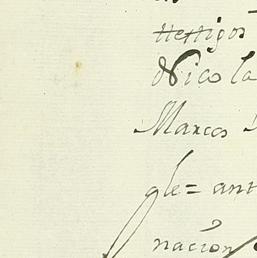 testigos
Nicola
Marcos
gle= ant
nacion